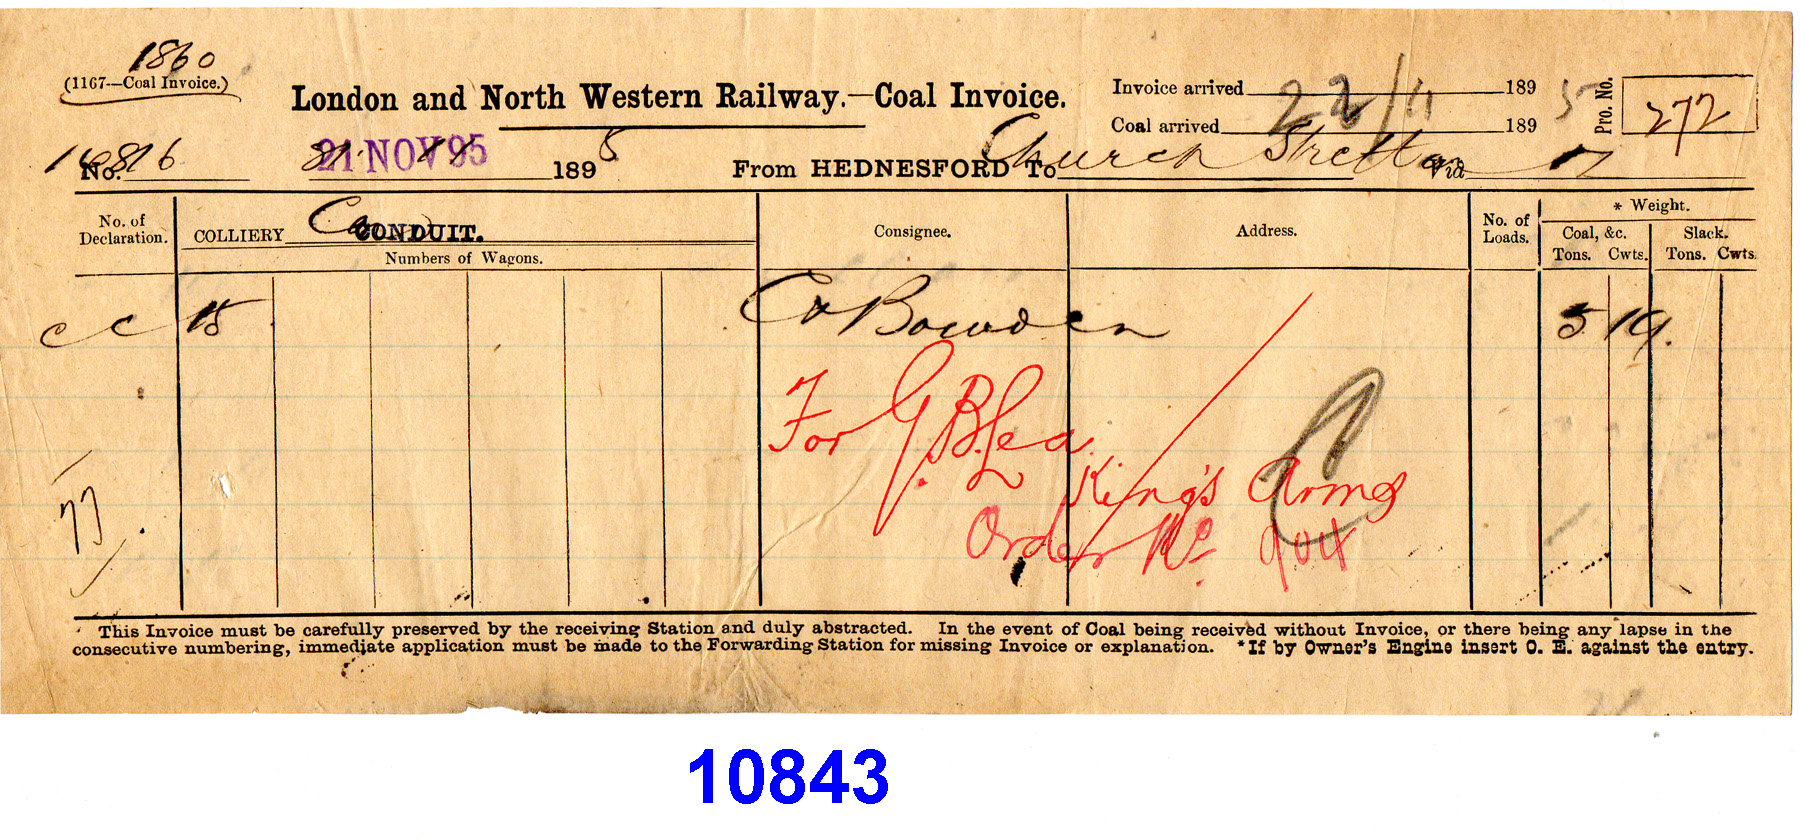 1860
(1167—Coal Invoice.)
London and North Western Railway.—Coal Invoice.
Invoice arrived 22/11 1895
Coal arrived 189
Pro. No. 272
No. 21 NOV 95 1895 From HEDNESFORD To Church Stretton Via
No. of Declaration.
COLLIERY CONDUIT.
Numbers of Wagons.
Consignee.
Address.
No. of Loads.
* Weight.
Coal, &c. Slack.
Tons. Cwts. Tons. Cwts.
c c 15 Bowden 5 19.
For G. B. Lea
King's Arms
Order No. 904
77
This Invoice must be carefully preserved by the receiving Station and duly abstracted. In the event of Coal being received without Invoice, or there being any lapse in the
consecutive numbering, immediate application must be made to the Forwarding Station for missing Invoice or explanation. *If by Owner's Engine insert O. E. against the entry.
10843